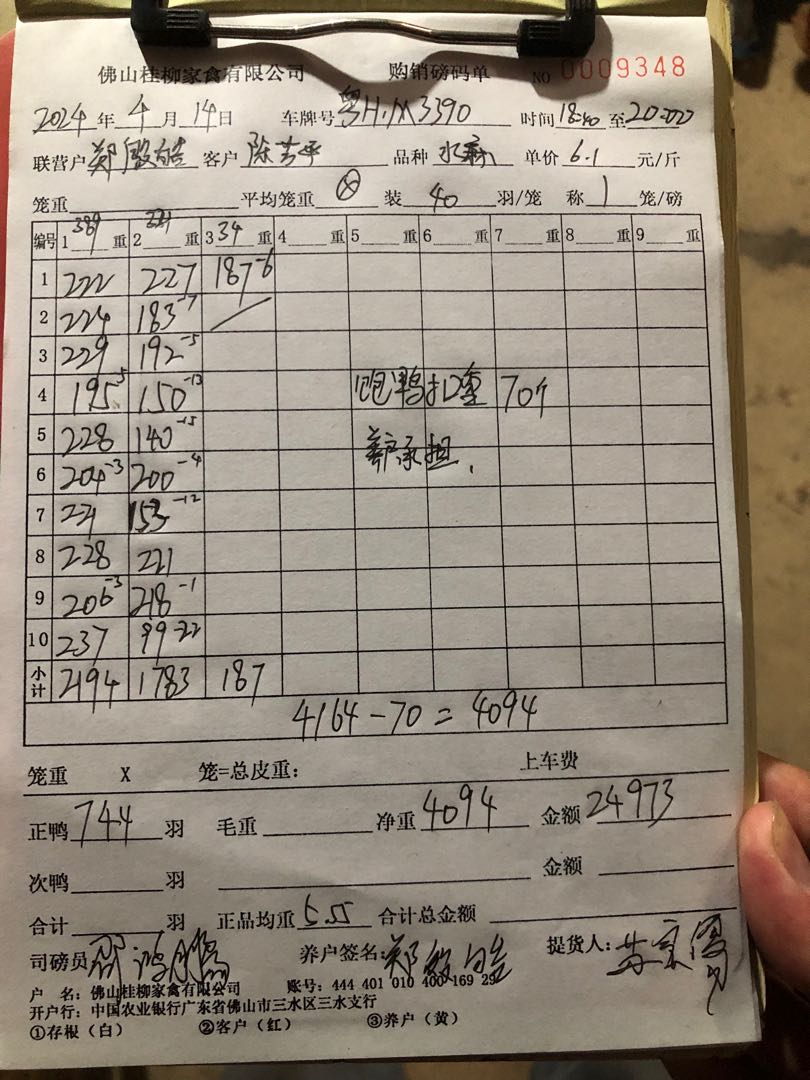 佛山桂柳家禽有限公司 购销磅码单 NO 0009348
2024年4月14日 车牌号粤H·M3390 时间18:40至20:00
联营户郑殷皓 客户陈芳平 品种水麻 单价6.1元/斤
笼重 平均笼重⊗装40羽/笼 称1笼/磅
编号 1 389 重 2 321 重 3 34 重 4 重 5 重 6 重 7 重 8 重 9 重
1 222 227 187-6
2 224 183-7 /
3 229 192-5
4 195-5 150-13 跑鸭扣重70斤
5 228 140-15 养户承担.
6 204-3 200-4
7 221 153-12
8 228 221
9 206-3 218-1
10 237 99-22
小计 2194 1783 187
4164-70=4094
笼重 X 笼=总皮重: 上车费
正鸭744羽 毛重 净重4094 金额24973
次鸭 羽 金额
合计 羽 正品均重5.55 合计总金额
司磅员 养户签名:郑殷皓 提货人:
户 名:佛山桂柳家禽有限公司 账号:444 401 010 400 169 29
开户行:中国农业银行广东省佛山市三水区三水支行
①存根(白) ②客户(红) ③养户(黄)